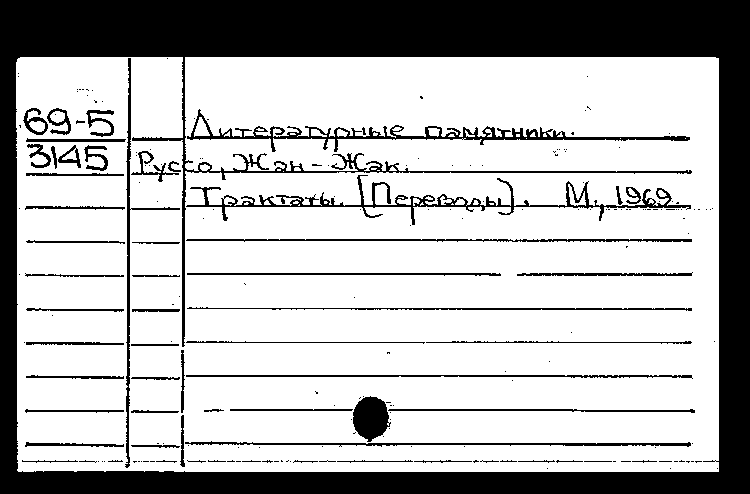 69-5 Литературные памятники.
3145 Руссо, Жан-Жак.
Трактаты. [Переводы]. М., 1969.